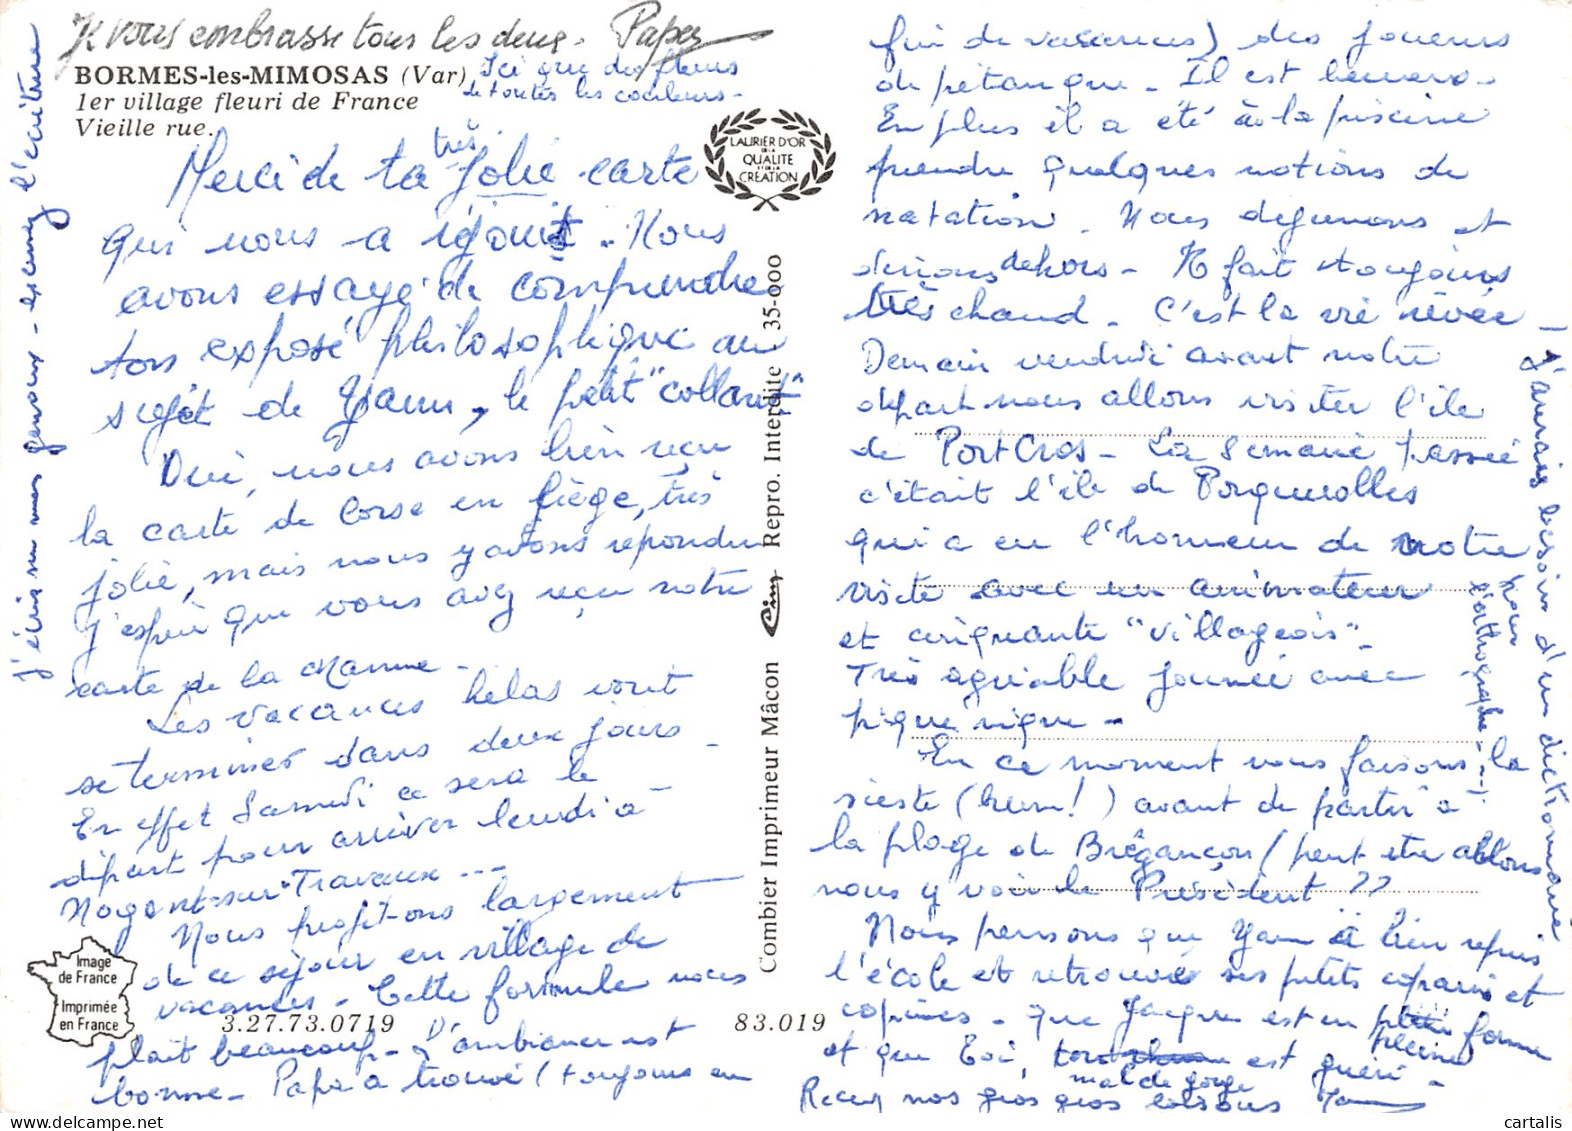 Je vous embrasse tous les deux. Papa
BORMES-les-MIMOSAS (Var)
1er village fleuri de France
Vieille rue.
Ici que des fleurs
de toutes les couleurs -
LAURIER D'OR
DE LA
QUALITE
ET DE LA
CRÉATION
Merci de ta très jolie carte
qui nous a réjouit. Nous
avons essayé de comprendre
ton exposé philosophique au
sujet de Yann, le petit "collant"
Oui, nous avons bien reçu
la carte de Corse en liège, très
jolie, mais nous y avons répondu
j'espère que vous avez reçu notre
carte de la
Les vacances hélas vont
se terminer dans deux jours -
En effet Samedi ce sera le
départ pour arriver lundi à
Nogent-sur-Travaux ---
Nous profitons largement
de ce séjour en village de
vacances - Cette formule nous
plait beaucoup - L'ambiance est
bonne - Papa a trouvé (toujours en
fin de vacances) des joueurs
de pétanque - Il est heureux -
En plus il a été à la piscine
prendre quelques notions de
natation. Nous déjeunons et
dinons dehors - Il fait toujours
très chaud. C'est la vie rêvée -
Demain vendredi avant notre
départ nous allons visiter l'île
de Port Cros - La semaine passée
c'était l'île de Porquerolles
qui a eu l'honneur de notre
visite avec un animateur
et cinquante "villageois".
Très agréable journée avec
pique nique -
En ce moment nous faisons la
sieste (hum!) avant de partir à
la plage de Brégançon (peut etre allons
nous y voir le Président ??
Nous pensons que Yann a bien repris
l'école et retrouvé ses petits copains et
copines - que Jacques est en pleine forme
et que toi, mal de gorge est guéri -
Recevez nos gros gros baisers
J'écris sur mes genoux - excusez l'écriture
J'aurais besoin d'un dictionnaire
pour
l'orthographe -
Combier Imprimeur Mâcon Cim Repro. Interdite - 35-000
Image
de France
Imprimée
en France
3.27.73.0719
83.019
cartalis